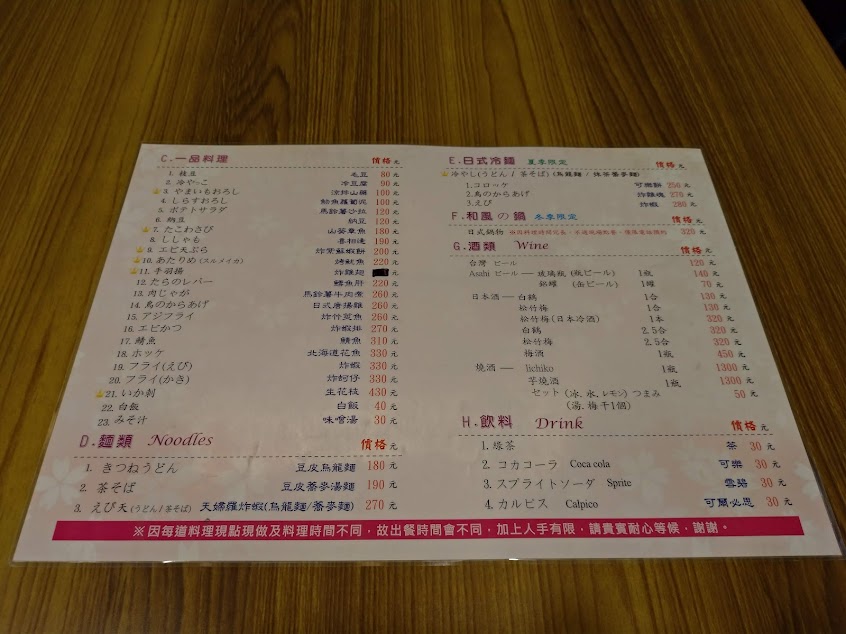 C.一品料理 價格 元
1. 枝豆 毛豆 80 元
2. 冷やっこ 冷豆腐 90 元
3. やまいもおろし 涼拌山藥 100 元
4. しらすおろし 魩魚蘿蔔泥 100 元
5. ポテトサラダ 馬鈴薯沙拉 120 元
6. 納豆 納豆 120 元
7. たこわさび 山葵章魚 180 元
8. ししゃも 喜相逢 190 元
9. エビ天ぷら 炸紫蘇蝦餅 200 元
10. あたりめ (スルメイカ) 烤魷魚 220 元
11. 手羽揚 炸雞翅 元
12. たらのレバー 鱈魚肝 220 元
13. 肉じゃが 馬鈴薯牛肉煮 260 元
14. 鳥のからあげ 日式唐揚雞 260 元
15. アジフライ 炸竹筴魚 260 元
16. エビかつ 炸蝦排 270 元
17. 鯖魚 鯖魚 310 元
18. ホッケ 北海道花魚 330 元
19. フライ(えび) 炸蝦 330 元
20. フライ(かき) 炸蚵仔 330 元
21. いか刺 生花枝 430 元
22. 白飯 白飯 40 元
23. みそ汁 味噌湯 30 元
D.麵類 Noodles 價格 元
1. きつねうどん 豆皮烏龍麵 180 元
2. 茶そば 豆皮蕎麥湯麵 190 元
3. えび天 (うどん / 茶そば) 天婦羅炸蝦(烏龍麵/蕎麥麵) 270 元
E.日式冷麵 夏季限定 價格 元
冷やし(うどん / 茶そば) (烏龍麵 / 抹茶蕎麥麵)
1.コロッケ 可樂餅 250 元
2.鳥のからあげ 炸雞塊 270 元
3.えび 炸蝦 280 元
F.和風の鍋 冬季限定 價格 元
日式鍋物 320 元
G.酒類 Wine 價格 元
台灣 ビール 120 元
Asahi ビール — 玻璃瓶 (瓶ビール) 1瓶 140 元
鋁罐 (缶ビール) 1罐 70 元
日本酒 — 白鶴 1合 130 元
松竹梅 1合 130 元
松竹梅(日本冷酒) 1本 320 元
白鶴 2.5合 320 元
松竹梅 2.5合 320 元
梅酒 1瓶 450 元
燒酒 — Iichiko 1瓶 1300 元
芋燒酒 1瓶 1300 元
セット (氷, 水, レモン) つまみ 50 元
(湯, 梅干1個)
H.飲料 Drink 價格 元
1. 綠茶 茶 30 元
2. コカコーラ Coca cola 可樂 30 元
3. スプライトソーダ Sprite 雪碧 30 元
4. カルピス Calpico 可爾必思 30 元
※因每道料理現點現做及料理時間不同，故出餐時間會不同，加上人手有限，請貴賓耐心等候，謝謝。